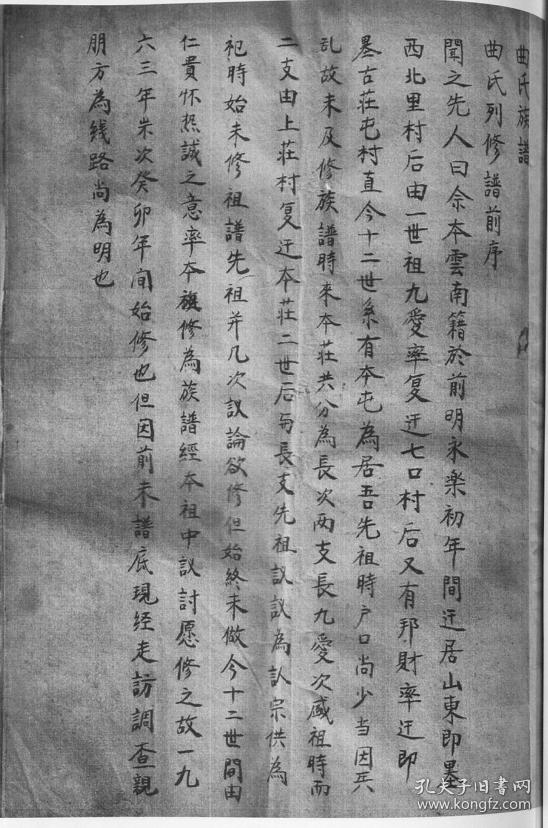 曲氏族譜
曲氏列修譜前序
聞之先人曰余本雲南籍於前明永樂初年間迁居山東即墨
西北里村后由一世祖九愛率复迁七口村后又有邦財率迁即
墨古莊屯村直今十二世系有本屯為居吾先祖時户口尚少当因兵
乱故未及修族譜時來本莊共分為長次两支長九愛次威祖時而
二支由上莊村复迁本莊二世后与長支先祖议议為认宗供為
祀時始未修祖譜先祖并几次议論欲修但始終未做今十二世間由
仁貴怀焄誠之意率本族修為族譜經本祖中议討愿修之故一九
六三年米次癸卯年间始修也但因前未譜底現经走訪調查親
朋方為线路尚為明也
孔夫子旧書网
www.kongfz.com